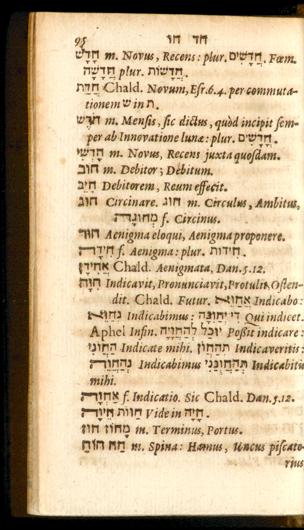 95 חד חו
חָדָשׁ m. Novus, Recens: plur. חֲדָשִׁים. Fœm.
חֲדָשָׁה plur. חֲדָשׁוֹת
חֲדַת Chald. Novum, Esr. 6. 4. per commuta-
tionem שׁ in ת.
חֹדֶשׁ m. Mensis, sic dictus, quòd incipit sem-
per ab Innovatione lunæ: plur. חֳדָשִׁים.
m. Novus, Recens juxta quosdam.
חוֹב m. Debitor; Debitum.
חִיֵּב Debitorem, Reum effecit.
חוּג Circinare. חוּג m. Circulus, Ambitus,
מְחוּגָה f. Circinus.
חוּד Aenigma eloqui, Aenigma proponere.
חִידָה f. Aenigma: plur. חִידוֹת.
אֲחִידָן Chald. Aenigmata, Dan. 5. 12.
חִוָּה Indicavit, Pronunciavit, Protulit, Osten-
dit. Chald. Futur. אֲחַוֶּא Indicabo:
נְחַוֵּא Indicabimus: דִּי יְחַוִּנַּהּ Qui indicet.
Aphel Infin. יוּכַל לְהַחֲוָיָה Possit indicare:
הַחֲוֻנִי Indicate mihi. תְּהַחֲוֹן Indicaveritis:
נְהַחֲוֵה Indicabimus תְּהַחֲוֻנַּנִי Indicabitis
mihi.
אַחֲוָה f. Indicatio. Sic Chald. Dan. 5. 12.
חַוּוֹת Vide in חָיָה.
חוֹז מָחוֹז m. Terminus, Portus.
חוֹחַ חָח m. Spina: Hamus, Uncus piscato-
rius